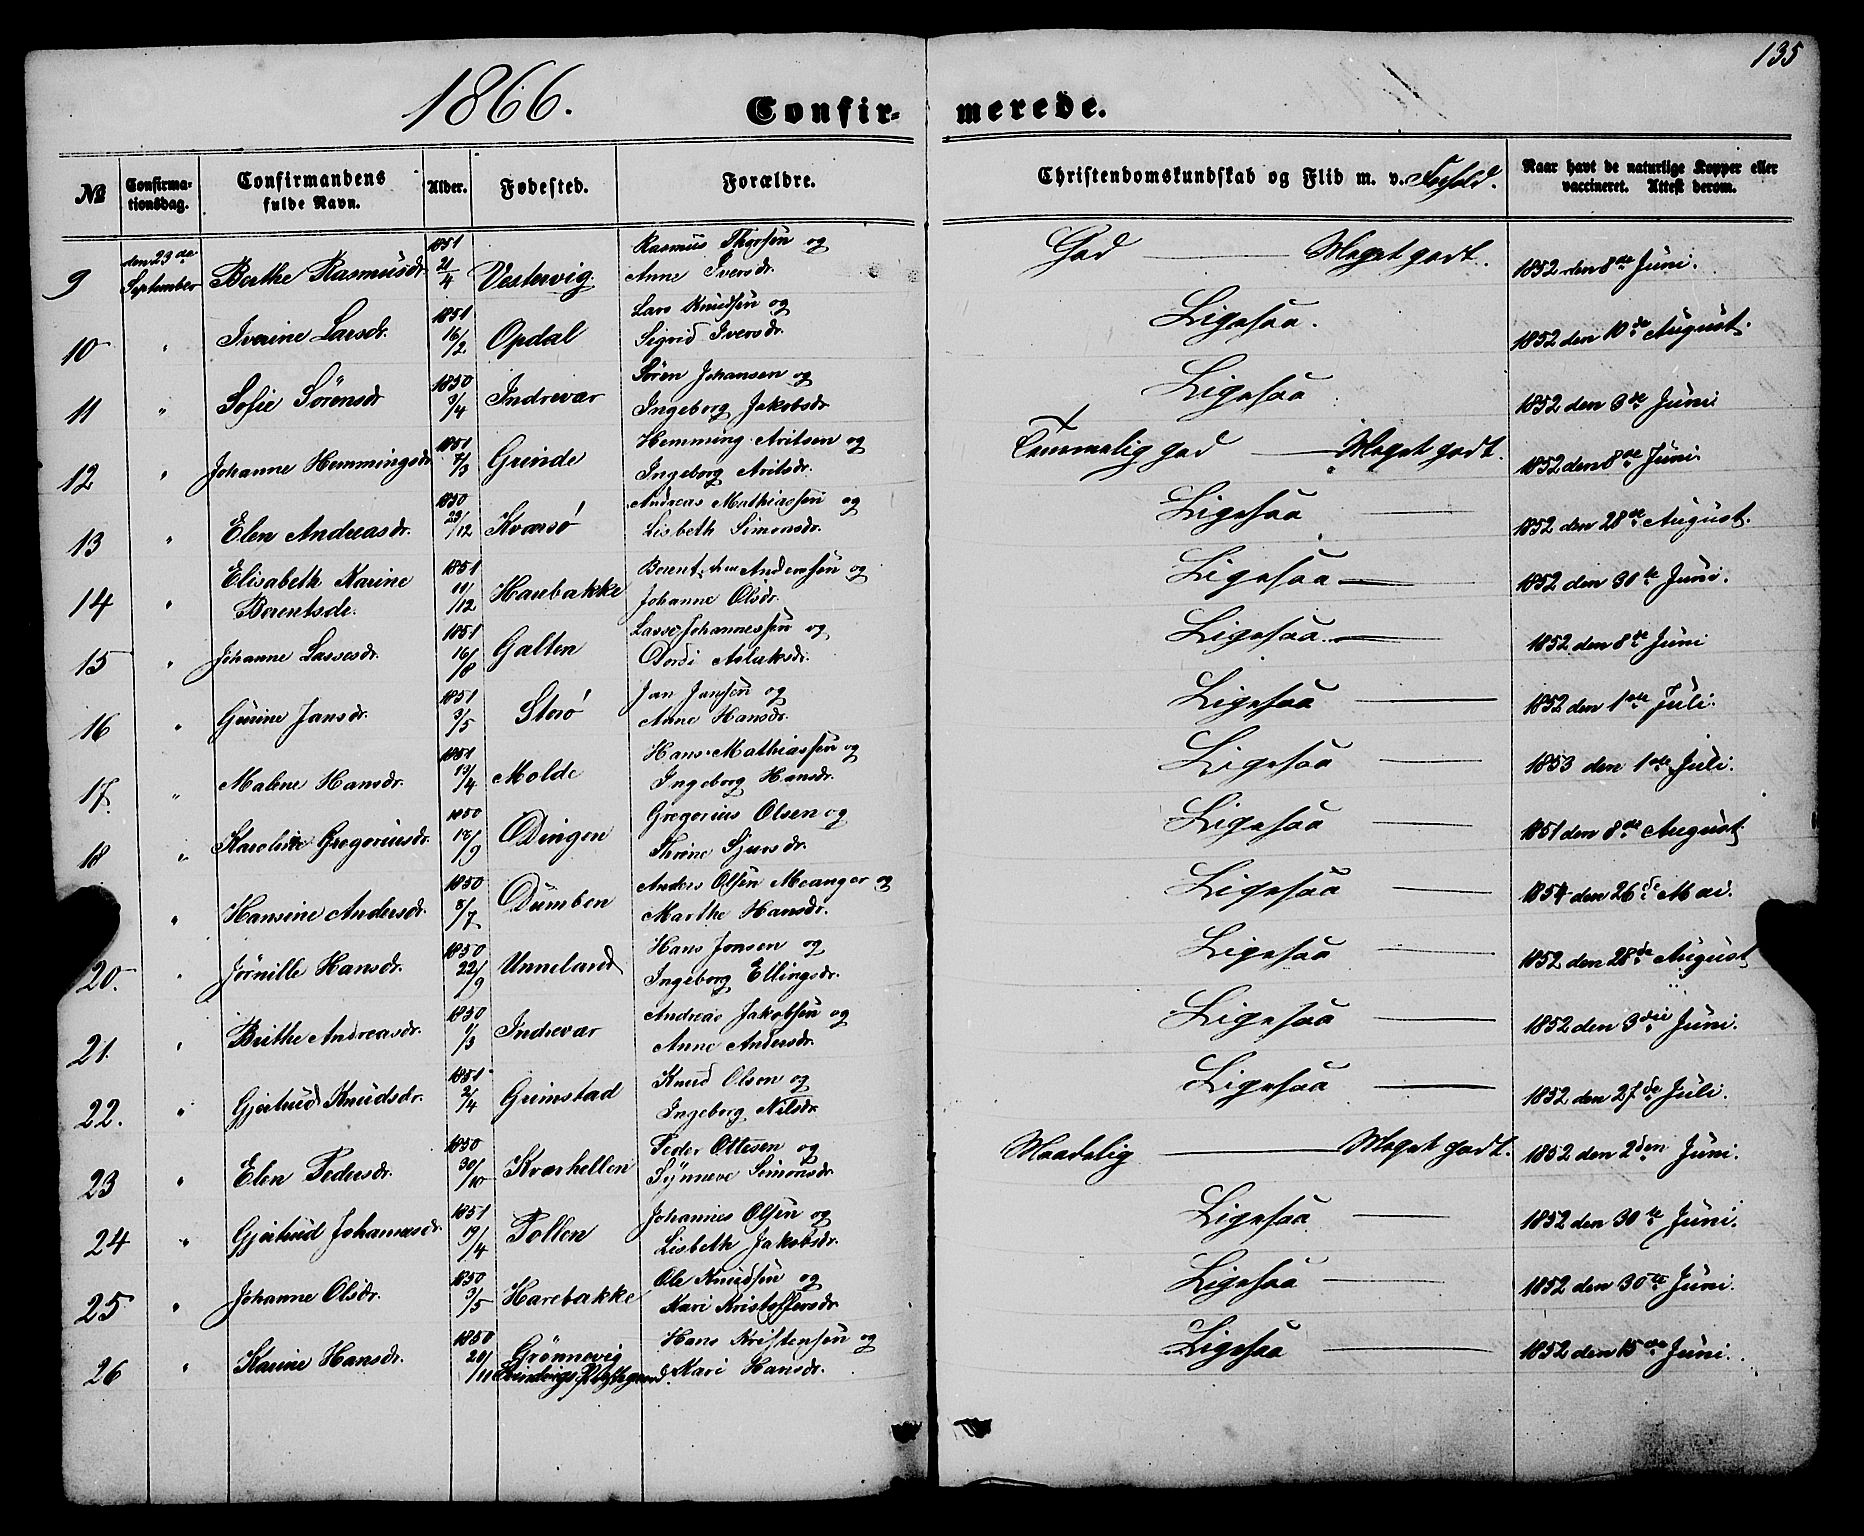 135
1866.
Confir- merede.
No Confirma-tionsdag. Confirmandens fulde Navn. Alder. Fødested. Forældre. Christendomskundskab og Flid m. v. Forhold. Naar havt de naturlige Kopper eller vaccineret. Attest derom.
9 den 23de September Berthe Rasmusdr. 1851 21/4 Vestervig Rasmus Thorsen og Anne Iversdr. God — Meget godt. 1852 den 8de Juni.
10 " Iverine Larsdr. 1851 16/2 Opdal Lars Knudsen og Sigrid Iversdr. Ligesaa. 1852 den 10de August.
11 " Sofie Sørensdr 1850 3/4 Indrevar Søren Johansen og Ingeborg Jakobsdr. Ligesaa 1852 den 3de Juni
12 " Johanne Hemmingsdr. 1851 7/3 Grinde Hemming Aritsen og Ingeborg Aritsdr. Temmelig god — Meget godt. 1852 den 8de Juni.
13 " Elen Andreasdr. 1850 23/12 Kvarsø Andreas Mathiassen og Lisbeth Simonsdr. Ligesaa — 1852 den 28de August.
14 " Elisabeth Karine Berentsdr. 1851 11/12 Harebakke Berent Andersen og Johanne Olsdr. Ligesaa — 1852 den 30te Juni.
15 " Johanne Lassesdr. 1851 16/8 Galten Lasse Johannessen og Dordi Aslaksdr. Ligesaa — 1852 den 8de Juni
16 " Gurine Jansdr. 1851 3/5 Storø Jan Jansen og Anne Hansdr. Ligesaa — 1852 den 1ste Juli.
17. " Malene Hansdr. 1851 13/4 Molde Hans Mathiassen og Ingeborg Hansdr. Ligesaa — 1853 den 1ste Juli.
18 " Karoline Gregoriusdr. 1850 18/9 Ødingen Gregorius Olsen og Thrine Sjursdr. Ligesaa — 1851 den 8de August
" Hansine Andersdr. 1850 8/7 Dumben Anders Olsen Meanger og Marthe Hansdr. Ligesaa — 1854 den 26de Mai.
20. " Jørnille Hansdr. 1850 22/9 Unneland Hans Jonsen og Ingeborg Ellingsdr. Ligesaa — 1852 den 28de August
21. " Brithe Andreasdr. 1850 1/3 Indrevar Andreas Jakobsen og Anne Andersdr. Ligesaa — 1852 den 3die Juni.
22. " Gjertrud Knudsdr. 1851 2/4 Grimstad Knud Olsen og Ingeborg Nilsdr. Ligesaa — 1852 den 27de Juli.
23 " Elen Pedersdr. 1850 30/10 Kvarhellen Peder Ottesen og Synneve Simonsdr. Maadelig — Meget godt. 1852 den 2den Juni.
24 " Gjertrud Johannesdr. 1851 19/4 Pollen Johannes Olsen og Lisbeth Jakobsdr. Ligesaa — 1852 den 30te Juni.
25 " Johanne Olsdr. 1850 3/5 Harebakke Ole Knudsen og Kari Kristoffersdr. Ligesaa — 1852 den 30te Juni.
26 " Karine Hansdr. 1850 20/11 Grønnevig Præstegjeld. Hans Kristensen og Kari Hansdr. Ligesaa — 1852 den 15de Juni.